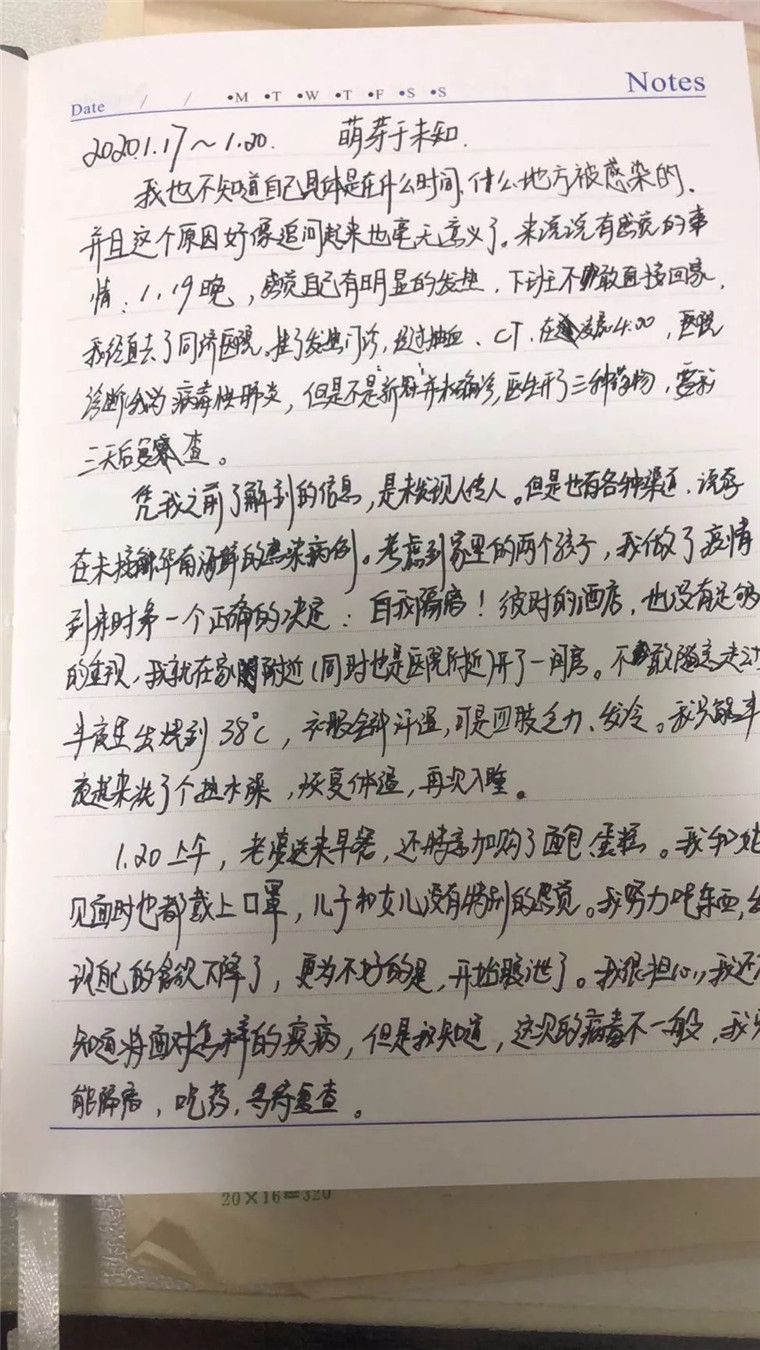 Date / / •M •T •W •T •F •S •S Notes
2020.1.17～1.20. 萌芽于未知.
我也不知道自己具体是在什么时间、什么地方被感染的.
并且这个原因好像追问起来也毫无意义了。来说说有感觉的事
情：1.19晚，感觉自己有明显的发热，下班不敢直接回家，
我径直去了同济医院。挂了发热门诊，经过抽血、CT、在凌晨4:00，医院
诊断我为病毒性肺炎，但是不是"新冠"并未确诊，医生开了三种药物，需
三天后复查。
凭我之前了解到的信息，是未发现人传人。但是也有各种渠道，说存
在未接触华南海鲜的感染病例。考虑到家里的两个孩子，我做了疫情
到来时第一个正确的决定：自我隔离！彼时的酒店，也没有足够
的重视，我就在家附近(同时也是医院附近)开了一间房。不敢随意走动
半夜里发烧到38℃，衣服全部汗湿，可是四肢乏力、发冷。我只能半
夜起来洗了个热水澡，恢复体温，再次入睡。
1.20上午，老婆送来早餐，还特意加购了面包、蛋糕。我和她
见面时也都戴上口罩，儿子和女儿没有特别的感觉。我努力吃东西，
的食欲下降了，更为不好的是，开始腹泄了。我很担心，我还
知道将面对怎样的疾病，但是我知道，这次的病毒不一般，我只
能隔离，吃药，等待复查。
20×16=320